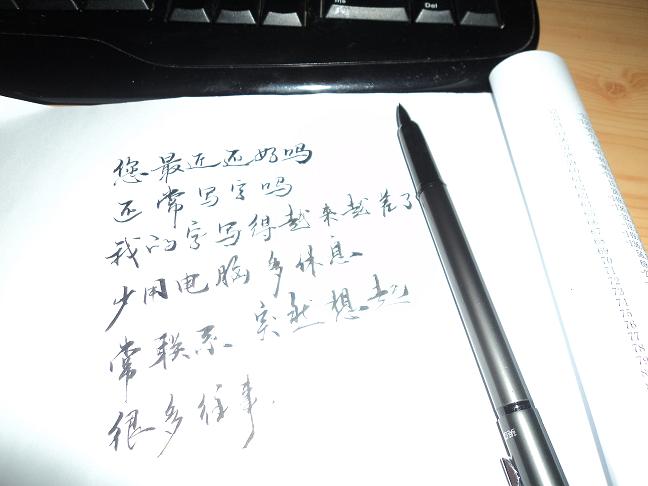 Ins
Del
您最近还好吗
还常写字吗
我的字写得越来越差了
少用电脑多休息
常联系 突然想起
很多往事.